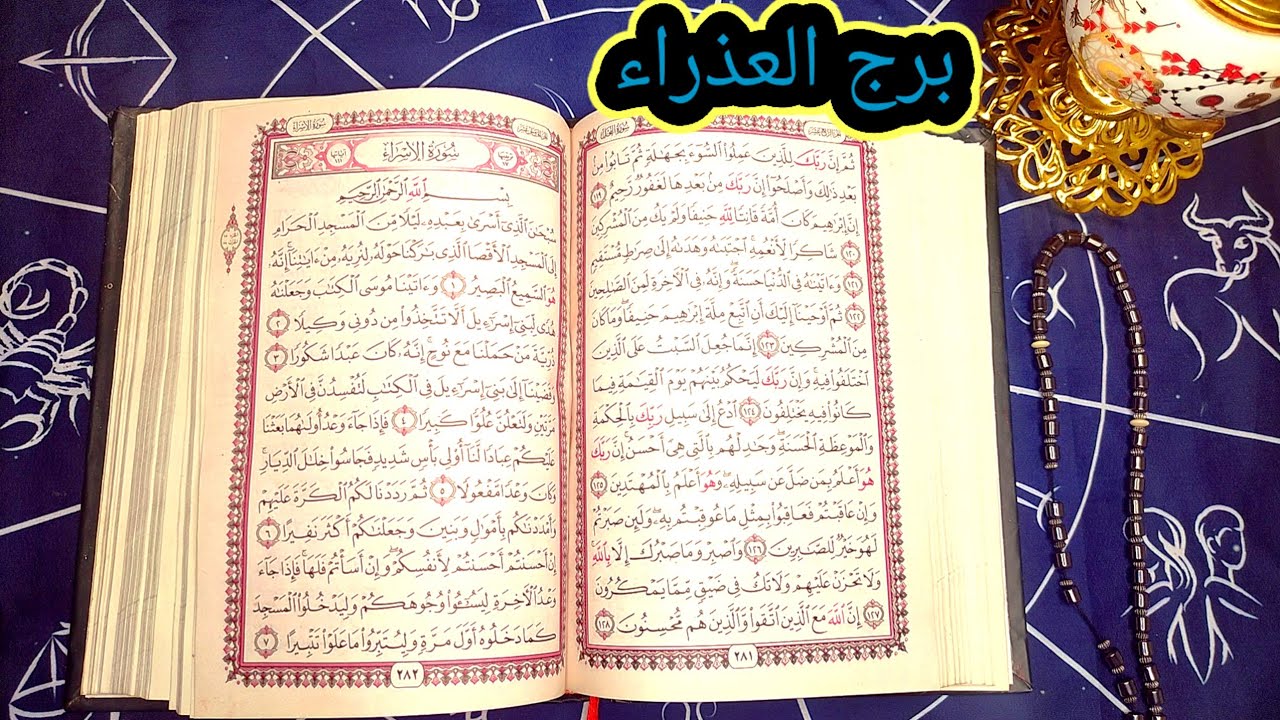 برج العذراء
سورة النحل
ثُمَّ إِنَّ رَبَّكَ لِلَّذِينَ عَمِلُوا۟ ٱلسُّوٓءَ بِجَهَٰلَةٍ ثُمَّ تَابُوا۟ مِنۢ
بَعْدِ ذَٰلِكَ وَأَصْلَحُوٓا۟ إِنَّ رَبَّكَ مِنۢ بَعْدِهَا لَغَفُورٌ رَّحِيمٌ ١١٩
إِنَّ إِبْرَٰهِيمَ كَانَ أُمَّةً قَانِتًا لِّلَّهِ حَنِيفًا وَلَمْ يَكُ مِنَ ٱلْمُشْرِكِينَ
شَاكِرًا لِّأَنْعُمِهِ ٱجْتَبَىٰهُ وَهَدَىٰهُ إِلَىٰ صِرَٰطٍ مُّسْتَقِيمٍ ١٢٠
وَءَاتَيْنَٰهُ فِى ٱلدُّنْيَا حَسَنَةً وَإِنَّهُۥ فِى ٱلْأَخِرَةِ لَمِنَ ٱلصَّٰلِحِينَ ١٢١
ثُمَّ أَوْحَيْنَآ إِلَيْكَ أَنِ ٱتَّبِعْ مِلَّةَ إِبْرَٰهِيمَ حَنِيفًا وَمَا كَانَ ١٢٢
مِنَ ٱلْمُشْرِكِينَ ١٢٣ إِنَّمَا جُعِلَ ٱلسَّبْتُ عَلَى ٱلَّذِينَ
ٱخْتَلَفُوا۟ فِيهِ وَإِنَّ رَبَّكَ لَيَحْكُمُ بَيْنَهُمْ يَوْمَ ٱلْقِيَٰمَةِ فِيمَا
كَانُوا۟ فِيهِ يَخْتَلِفُونَ ١٢٤ ٱدْعُ إِلَىٰ سَبِيلِ رَبِّكَ بِٱلْحِكْمَةِ
وَٱلْمَوْعِظَةِ ٱلْحَسَنَةِ وَجَٰدِلْهُم بِٱلَّتِى هِىَ أَحْسَنُ إِنَّ رَبَّكَ
هُوَ أَعْلَمُ بِمَن ضَلَّ عَن سَبِيلِهِۦ وَهُوَ أَعْلَمُ بِٱلْمُهْتَدِينَ ١٢٥
وَإِنْ عَاقَبْتُمْ فَعَاقِبُوا۟ بِمِثْلِ مَا عُوقِبْتُم بِهِۦ وَلَئِن صَبَرْتُمْ
لَهُوَ خَيْرٌ لِّلصَّٰبِرِينَ ١٢٦ وَٱصْبِرْ وَمَا صَبْرُكَ إِلَّا بِٱللَّهِ
وَلَا تَحْزَنْ عَلَيْهِمْ وَلَا تَكُ فِى ضَيْقٍ مِّمَّا يَمْكُرُونَ
١٢٧ إِنَّ ٱللَّهَ مَعَ ٱلَّذِينَ ٱتَّقَوا۟ وَّٱلَّذِينَ هُم مُّحْسِنُونَ ١٢٨
٢٨١
سورة الإسراء
سُورَةُ الإِسْرَاءِ
بِسْمِ ٱللَّهِ ٱلرَّحْمَٰنِ ٱلرَّحِيمِ
سُبْحَٰنَ ٱلَّذِىٓ أَسْرَىٰ بِعَبْدِهِۦ لَيْلًا مِّنَ ٱلْمَسْجِدِ ٱلْحَرَامِ
إِلَى ٱلْمَسْجِدِ ٱلْأَقْصَا ٱلَّذِى بَٰرَكْنَا حَوْلَهُۥ لِنُرِيَهُۥ مِنْ ءَايَٰتِنَآ إِنَّهُۥ
هُوَ ٱلسَّمِيعُ ٱلْبَصِيرُ ١ وَءَاتَيْنَا مُوسَى ٱلْكِتَٰبَ وَجَعَلْنَٰهُ
هُدًى لِّبَنِىٓ إِسْرَٰٓءِيلَ أَلَّا تَتَّخِذُوا۟ مِن دُونِى وَكِيلًا ٢
ذُرِّيَّةَ مَنْ حَمَلْنَا مَعَ نُوحٍ إِنَّهُۥ كَانَ عَبْدًا شَكُورًا ٣
وَقَضَيْنَآ إِلَىٰ بَنِىٓ إِسْرَٰٓءِيلَ فِى ٱلْكِتَٰبِ لَتُفْسِدُنَّ فِى ٱلْأَرْضِ
مَرَّتَيْنِ وَلَتَعْلُنَّ عُلُوًّا كَبِيرًا ٤ فَإِذَا جَآءَ وَعْدُ أُولَىٰهُمَا بَعَثْنَا
عَلَيْكُمْ عِبَادًا لَّنَآ أُو۟لِى بَأْسٍ شَدِيدٍ فَجَاسُوا۟ خِلَٰلَ ٱلدِّيَارِ
وَكَانَ وَعْدًا مَّفْعُولًا ٥ ثُمَّ رَدَدْنَا لَكُمُ ٱلْكَرَّةَ عَلَيْهِمْ
وَأَمْدَدْنَٰكُم بِأَمْوَٰلٍ وَبَنِينَ وَجَعَلْنَٰكُمْ أَكْثَرَ نَفِيرًا ٦
إِنْ أَحْسَنتُمْ أَحْسَنتُمْ لِأَنفُسِكُمْ وَإِنْ أَسَأْتُمْ فَلَهَا فَإِذَا جَآءَ
وَعْدُ ٱلْأَخِرَةِ لِيَسُـۥٓـُٔوا۟ وُجُوهَكُمْ وَلِيَدْخُلُوا۟ ٱلْمَسْجِدَ
كَمَا دَخَلُوهُ أَوَّلَ مَرَّةٍ وَلِيُتَبِّرُوا۟ مَا عَلَوْا۟ تَتْبِيرًا ٧
٢٨٢